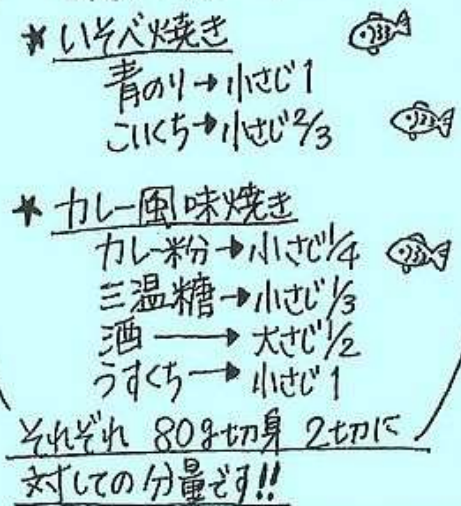 ★ いそべ焼き
青のり→小さじ1
こいくち→小さじ2/3
★ カレー風味焼き
カレー粉→小さじ1/4
三温糖→小さじ1/3
酒→大さじ1/2
うすくち→小さじ1
それぞれ 80g切身 2切に
対しての分量です!!